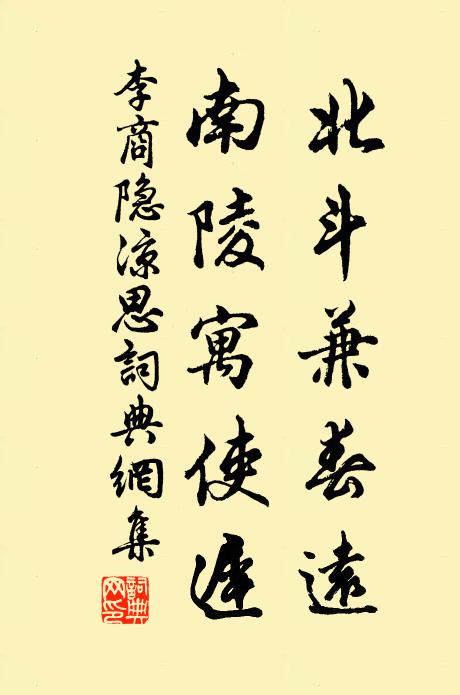 北斗兼春遠
南陵寓使遲
李商隐凉思詞典網集
詞典网印